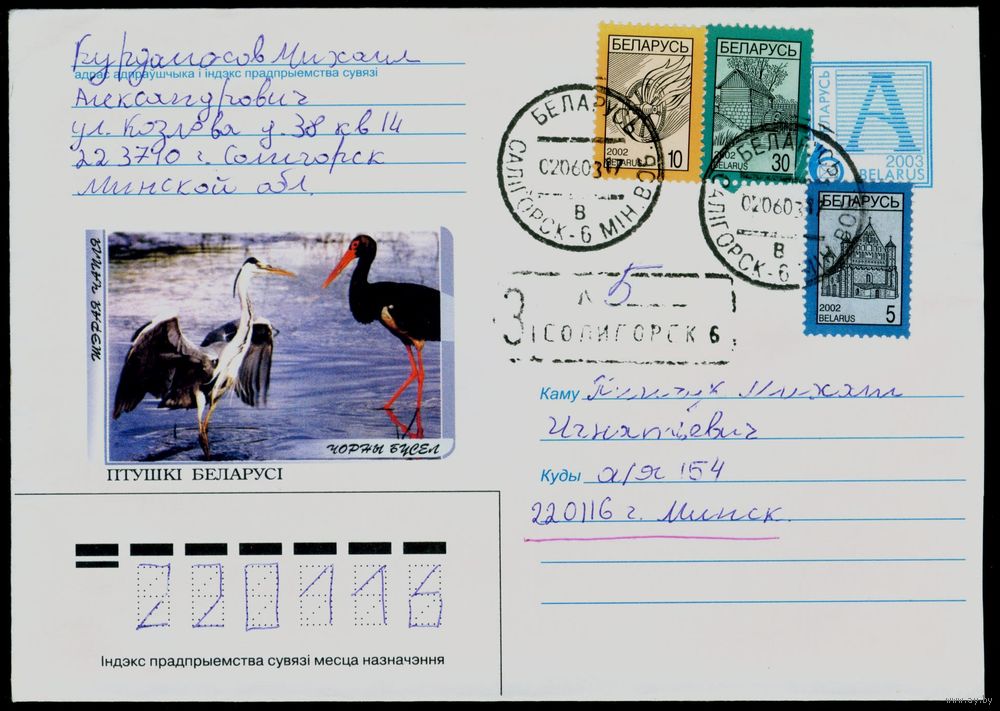 Бурдамосов Михаил
адрас адпраўшчыка і індэкс прадпрыемства сувязі
Александрович
ул. Козлова д. 38 кв 14
223710 г. Солигорск
Минской обл.
БЕЛАРУСЬ
2002
BELARUS
10
БЕЛАРУСЬ
2002
BELARUS
30
БЕЛАРУСЬ
A
2003
BELARUS
БЕЛАРУСЬ
2002
BELARUS
5
БЕЛАРУСЬ
020603 17
В
САЛІГОРСК-6 МІН. ВОБ.
БЕЛАРУСЬ
020603 17
В
САЛІГОРСК-6
З
5
СОЛИГОРСК 6
ЧОРНЫ БУСЕЛ
ПТУШКІ БЕЛАРУСІ
Каму Михаил
Игнатьевич
Куды а/я 154
220116 г. Минск.
220116
Індэкс прадпрыемства сувязі месца назначэння
www.ay.by